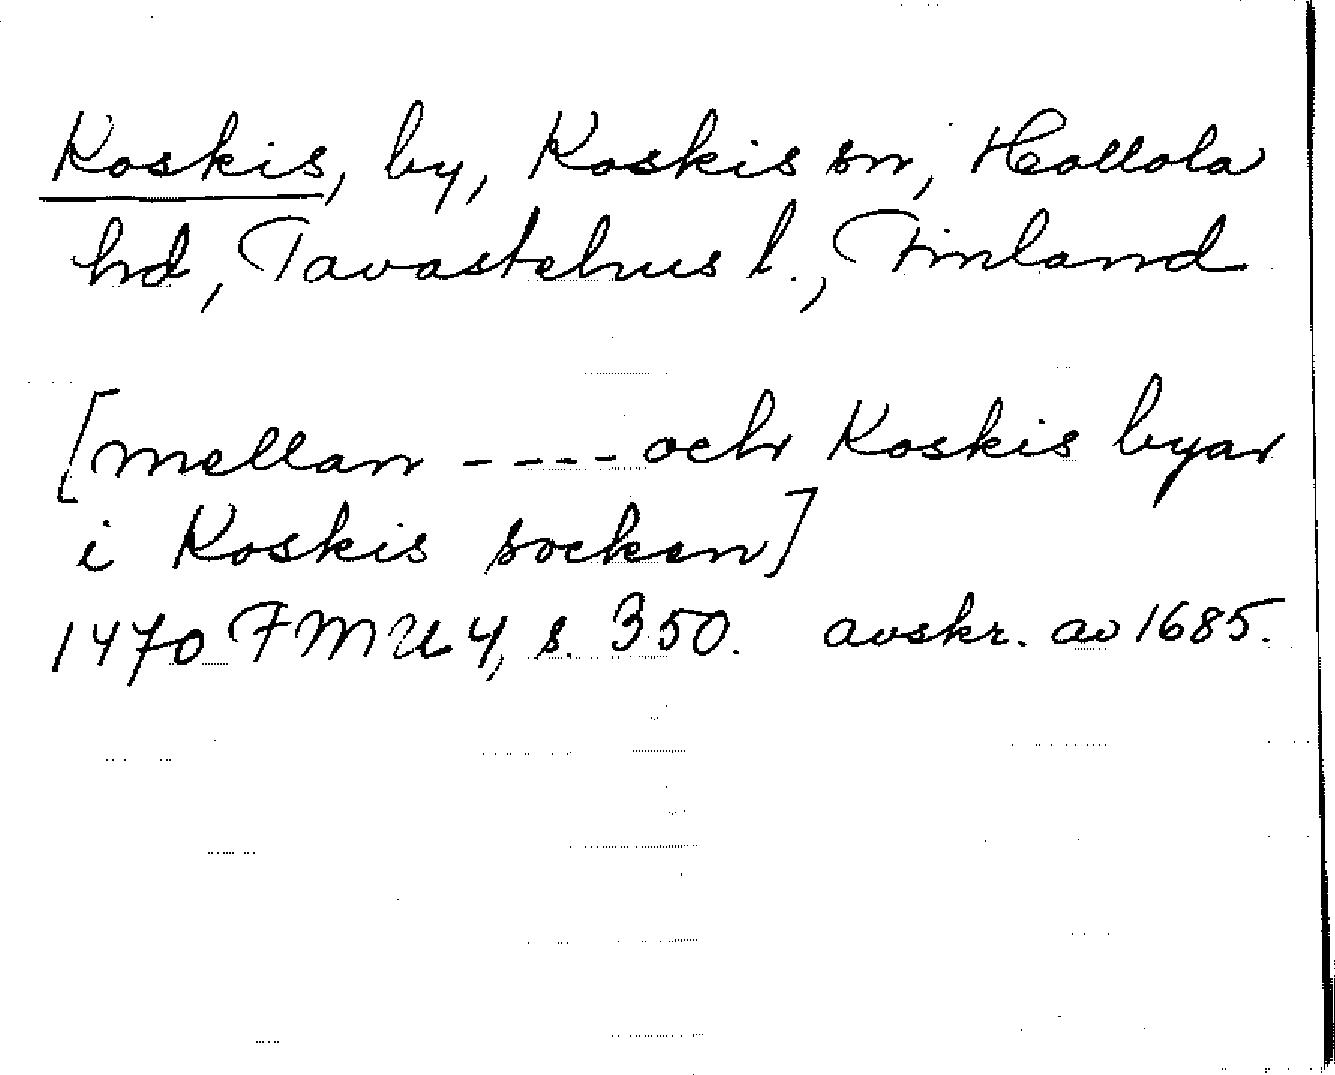 Koskis, by, Koskis sn, Hollola
hd, Tavastehus l., Finland
[mellan ---- och Koskis byar
i Koskis socken]
1470 FMU 4, s. 350. avskr. av 1685.